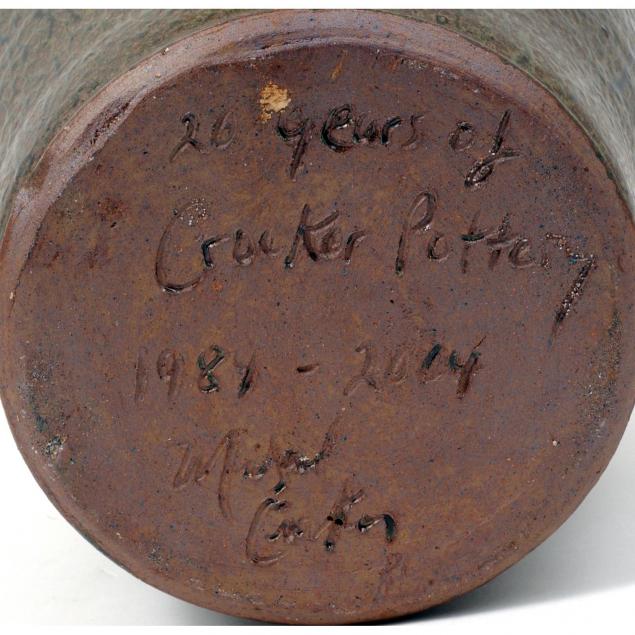 20 years of
Crocker Pottery
1984 - 2004
Michael
Crocker